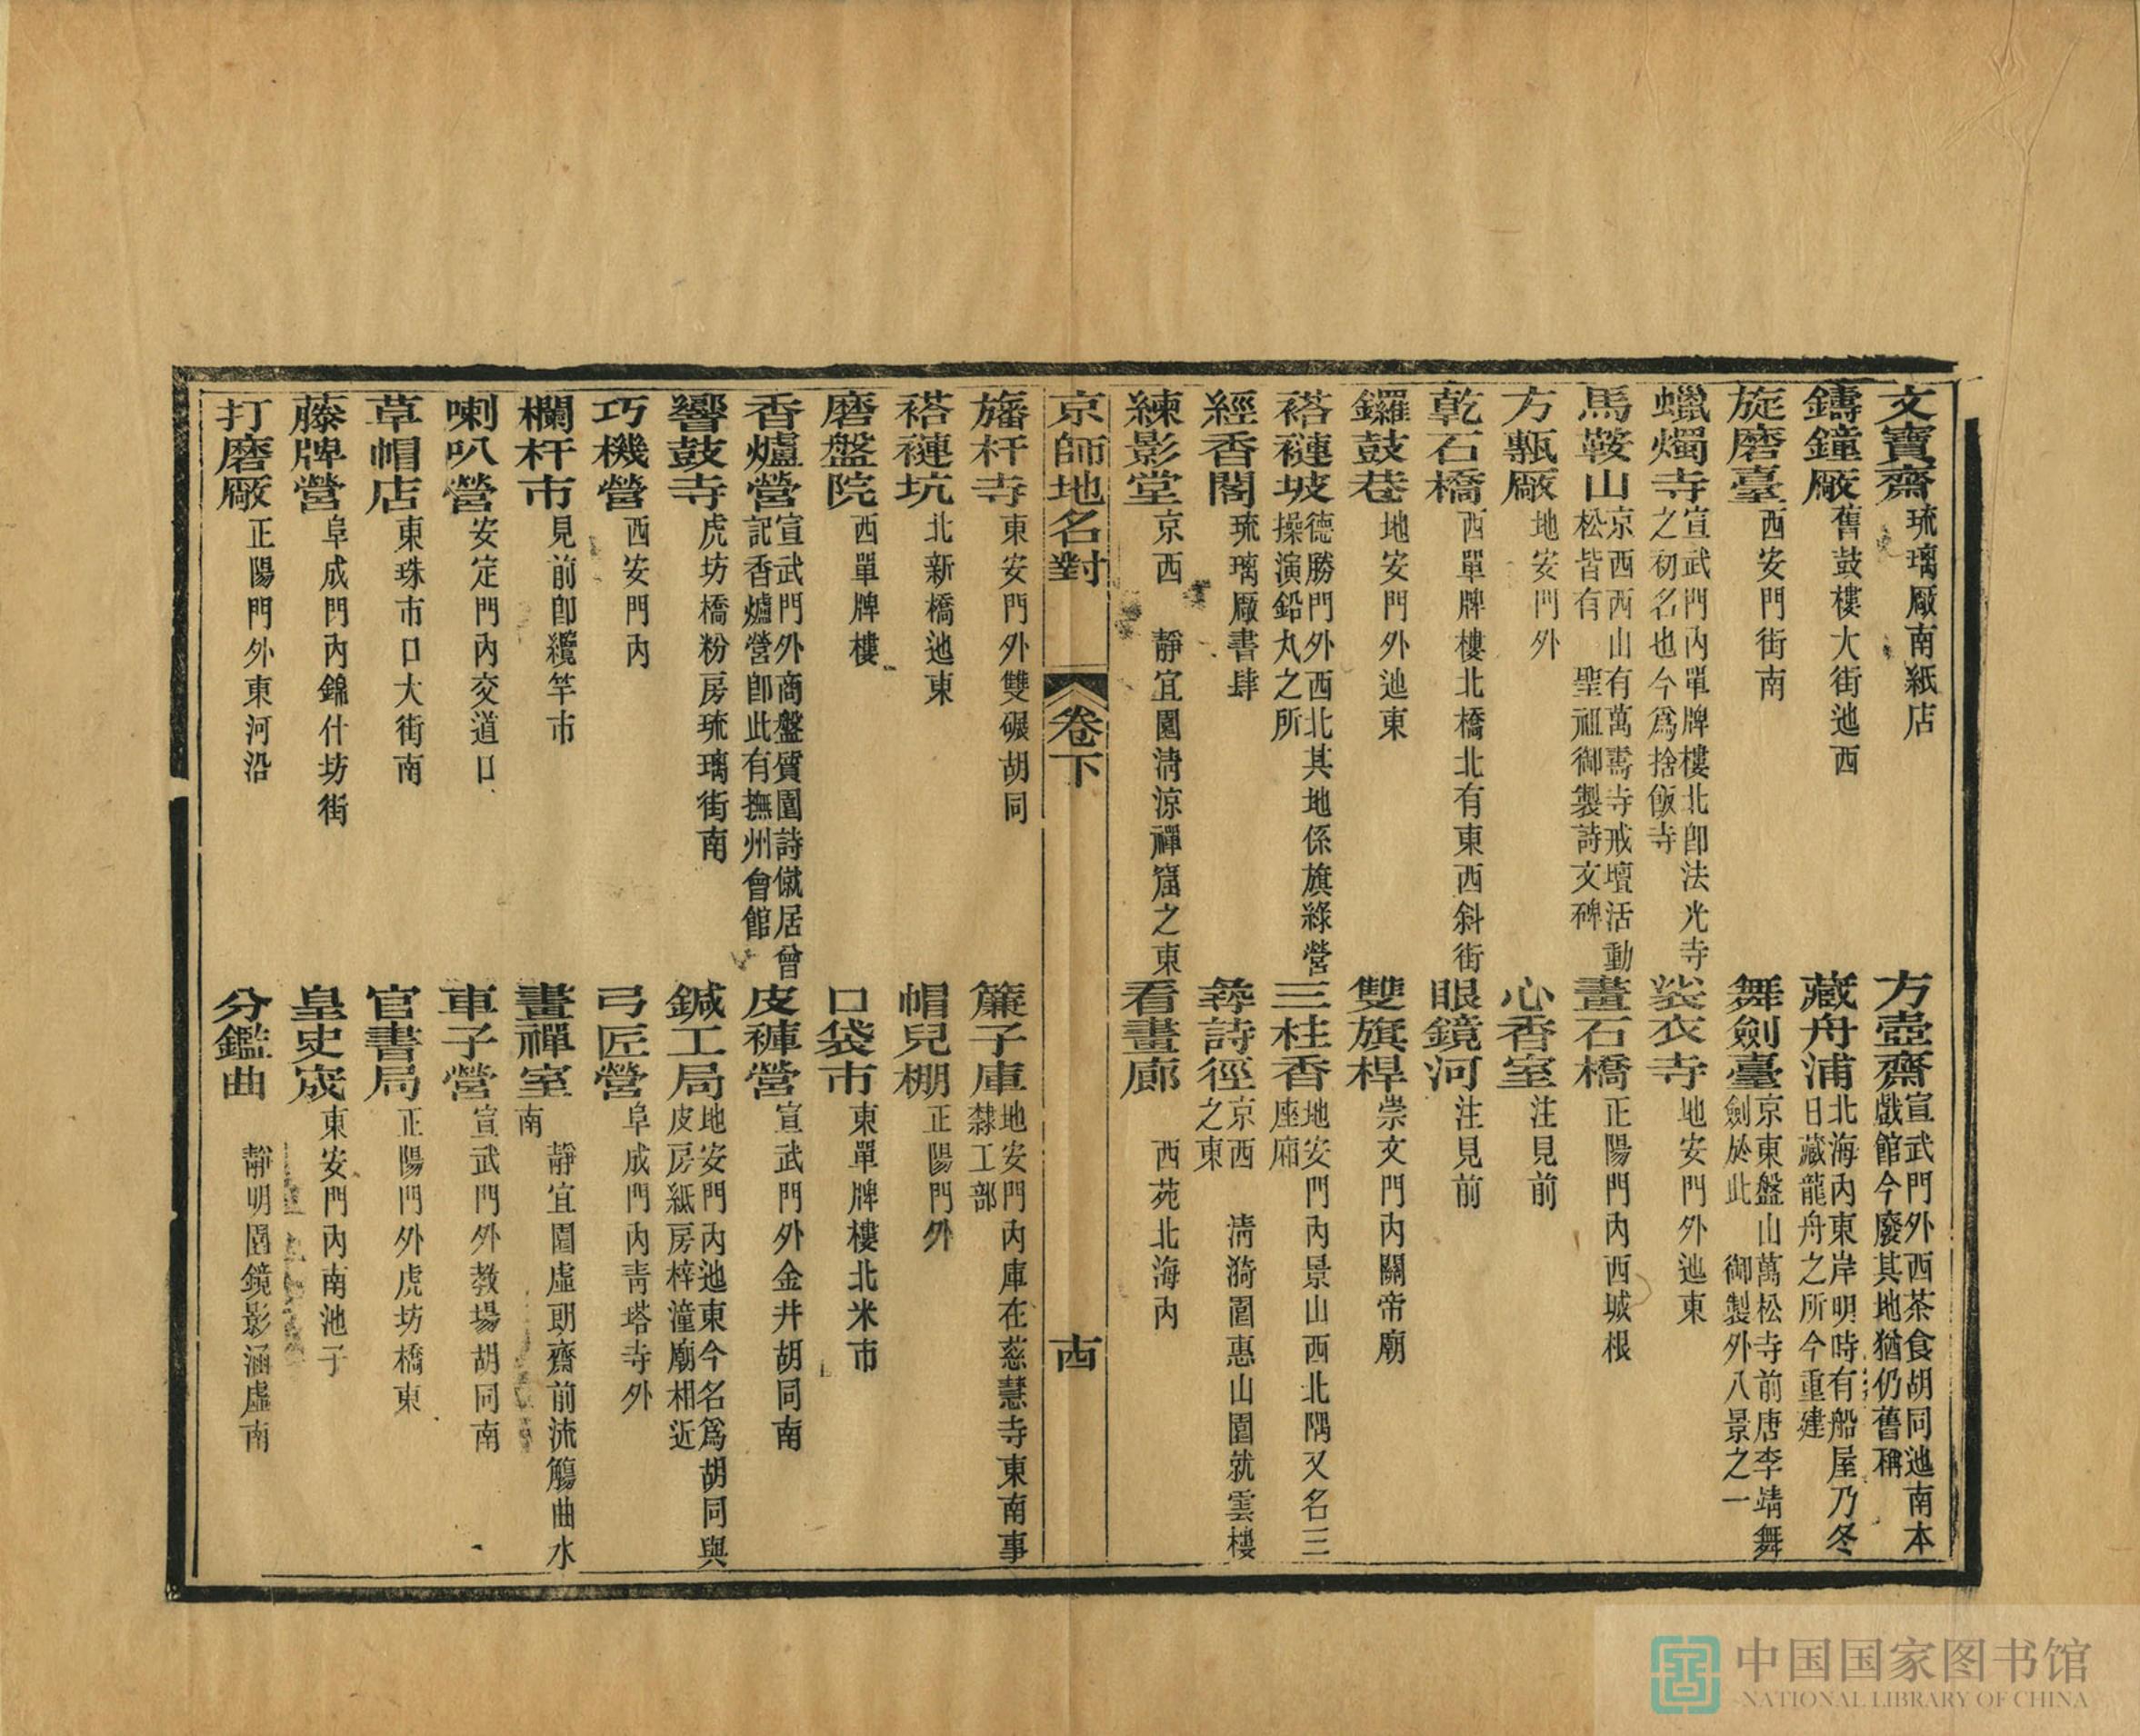 文寶齋琉璃厰南紙店　方壺齋宣武門外西茶食胡同迤南本戲館今廢其地猶仍舊稱
鑄鐘厰舊鼓樓大街迤西　藏舟浦北海內東岸明時有船屋乃冬日藏龍舟之所今重建
旋磨臺西安門街南　舞劍臺京東盤山萬松寺前唐李靖舞劍於此　御製外八景之一
蠟燭寺宣武門內單牌樓北卽法光寺之初名也今爲捨飯寺　裟衣寺地安門外迤東
馬鞍山京西西山有萬壽寺戒壇活動松皆有　聖祖御製詩文碑　畫石橋正陽門內西城根
方甎厰地安門外　心香室注見前
乾石橋西單牌樓北橋北有東西斜街　眼鏡河注見前
鑼鼓巷地安門外迤東　雙旗桿崇文門內關帝廟
褡褳坡德勝門外西北其地係旗綠營操演鉛丸之所　三柱香地安門內景山西北隅又名三座廂
經香閣琉璃厰書肆　尋詩徑京西　清漪園惠山園就雲樓之東
練影堂京西　靜宜園清涼禪窟之東　看畫廊　西苑北海內
京師地名對　卷下　十四
旛杆寺東安門外雙碾胡同　簾子庫地安門內庫在慈慧寺東南事隸工部
褡褳坑北新橋迤東　帽兒棚正陽門外
磨盤院西單牌樓　口袋市東單牌樓北米市
香爐營宣武門外商盤質園詩僦居曾記香爐營卽此有撫州會館　皮褲營宣武門外金井胡同南
響鼓寺虎坊橋粉房琉璃街南　鍼工局地安門內迤東今名爲胡同與皮房紙房梓潼廟相近
巧機營西安門內　弓匠營阜成門內靑塔寺外
欄杆市見前卽纜竿市　畫禪室　靜宜園虛朗齋前流觴曲水南
喇叭營安定門內交道口　車子營宣武門外教場胡同南
草帽店東珠市口大街南　官書局正陽門外虎坊橋東
藤牌營阜成門內錦什坊街　皇史宬東安門內南池子
打磨厰正陽門外東河沿　分鑑曲　靜明園鏡影涵虛南
中国国家图书馆
NATIONAL LIBRARY OF CHINA